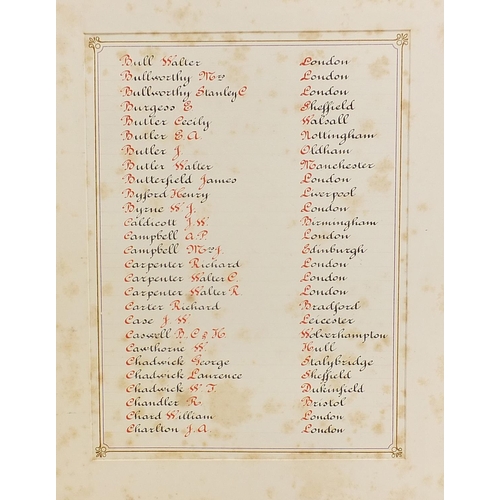 Bull Walter London
Bullworthy Mrs London
Bullworthy Stanley C London
Burgess E. Sheffield
Butler Cecily Walsall
Butler E. A. Nottingham
Butler J. Oldham
Butler Walter Manchester
Butterfield James London
Byford Henry Liverpool
Byrne W. J. London
Caldicott J. W. Birmingham
Campbell A. P. London
Campbell Mrs J. Edinburgh
Carpenter Richard London
Carpenter Walter C. London
Carpenter Walter R. London
Carter Richard Bradford
Case J. W. Leicester
Caswell B. C & H. Wolverhampton
Cawthorne W. Hull
Chadwick George Stalybridge
Chadwick Laurence Sheffield
Chadwick W. T. Dukinfield
Chandler R. Bristol
Chard William London
Charlton J. A. London